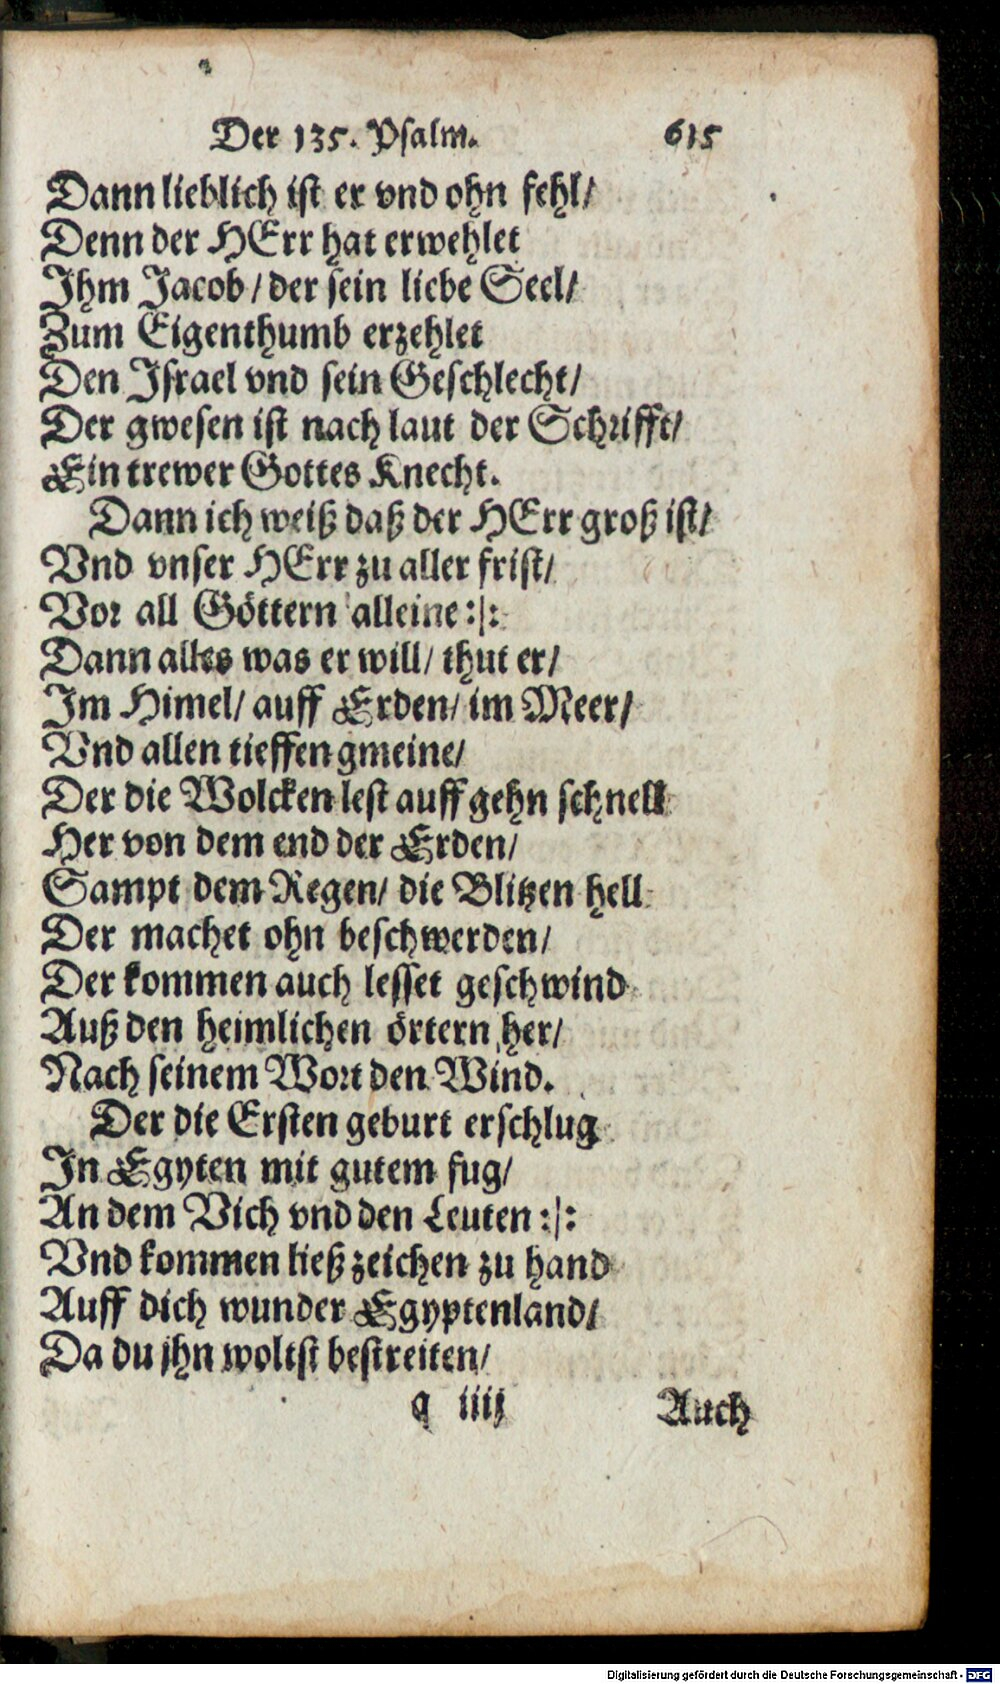 Der 135. Psalm. 615
Dann lieblich ist er vnd ohn fehl/
Denn der HErr hat erwehlet
Ihm Jacob / der sein liebe Seel/
Zum Eigenthumb erzehlet
Den Israel vnd sein Geschlecht/
Der gwesen ist nach laut der Schrifft/
Ein trewer Gottes Knecht.
Dann ich weiß daß der HErr groß ist/
Vnd vnser HErr zu aller frist/
Vor all Göttern alleine :|:
Dann alles was er will/ thut er/
Im Himel/ auff Erden/ im Meer/
Vnd allen tieffen gmeine/
Der die Wolcken lest auff gehn schnell
Her von dem end der Erden/
Sampt dem Regen/ die Blitzen hell
Der machet ohn beschwerden/
Der kommen auch lesset geschwind
Auß den heimlichen örtern her/
Nach seinem Wort den Wind.
Der die Ersten geburt erschlug
In Egyten mit gutem fug/
An dem Vich vnd den Leuten :|:
Vnd kommen ließ zeichen zu hand
Auff dich wunder Egyptenland/
Da du jhn woltst bestreiten/
q iiij Auch
Digitalisierung gefördert durch die Deutsche Forschungsgemeinschaft - DFG